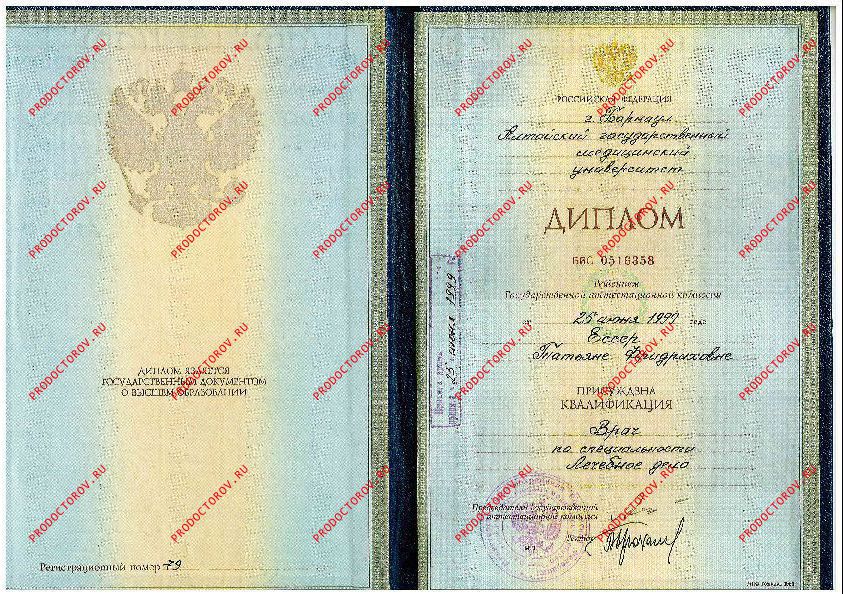 ДИПЛОМ ЯВЛЯЕТСЯ
ГОСУДАРСТВЕННЫМ ДОКУМЕНТОМ
О ВЫСШЕМ ОБРАЗОВАНИИ
Регистрационный номер 79
РОССИЙСКАЯ ФЕДЕРАЦИЯ
г. Барнаул
Алтайский государственный
медицинский
университет
ДИПЛОМ
БВС 0516358
Решением
Государственной аттестационной комиссии
от 25 июня 1999 года
Ессер
Татьяне Фридриховне
ПРИСУЖДЕНА
КВАЛИФИКАЦИЯ
Врач
по специальности
Лечебное дело
Председатель Государственной
аттестационной комиссии
Ректор
М.П.
25 июня 1999
PRODOCTOROV.RU